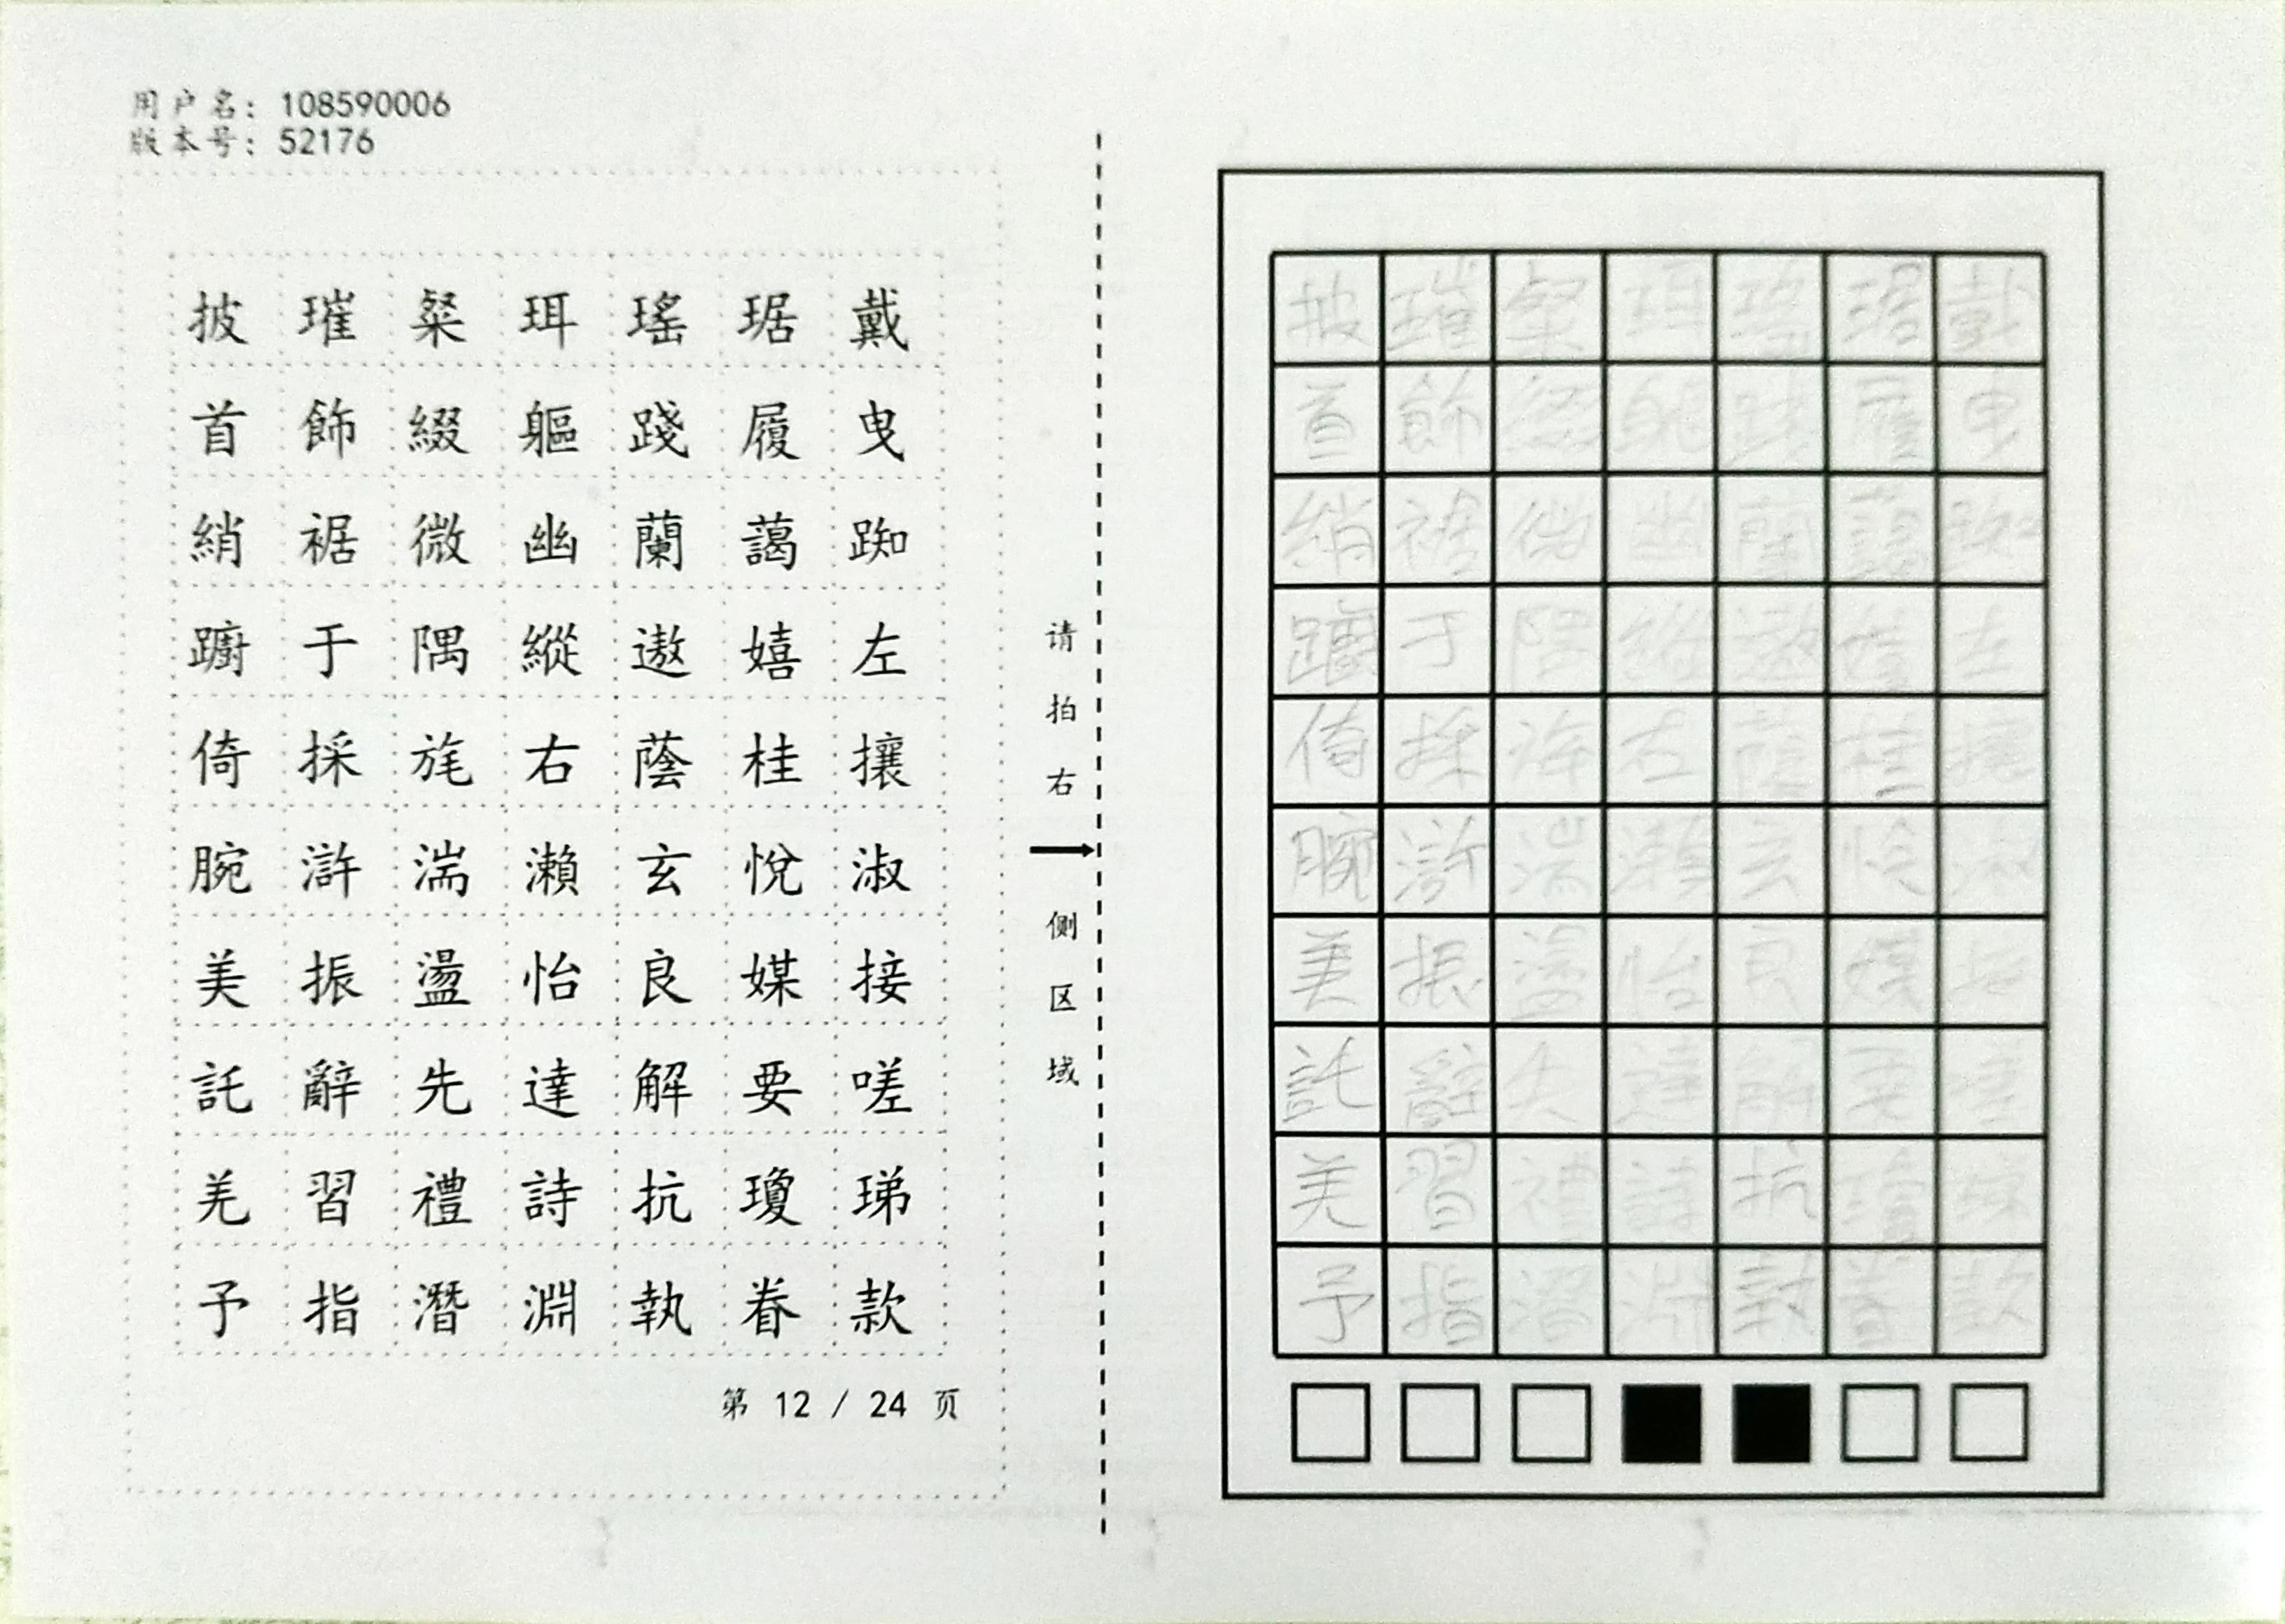 用户名: 108590006
版本号: 52176
披璀粲珥瑤琚戴
首飾綴軀踐履曳
綃裾微幽蘭藹踟
躕于隅縱遨嬉左
倚採旄右蔭桂攘
腕滸湍瀨玄悅淑
美振盪怡良媒接
託辭先達解要嗟
羌習禮詩抗瓊珶
予指潛淵執眷款
第 12 / 24 页
请拍右侧区域
披璀粲珥瑤琚戴
首飾綴軀踐履曳
綃裾微幽蘭藹踟
躕于隅縱遨嬉左
倚採右蔭桂攘
腕滸湍瀨玄悅淑
美振盪怡良媒
託辭達解要嗟
羌習禮詩抗瓊珶
予指潛淵執眷款